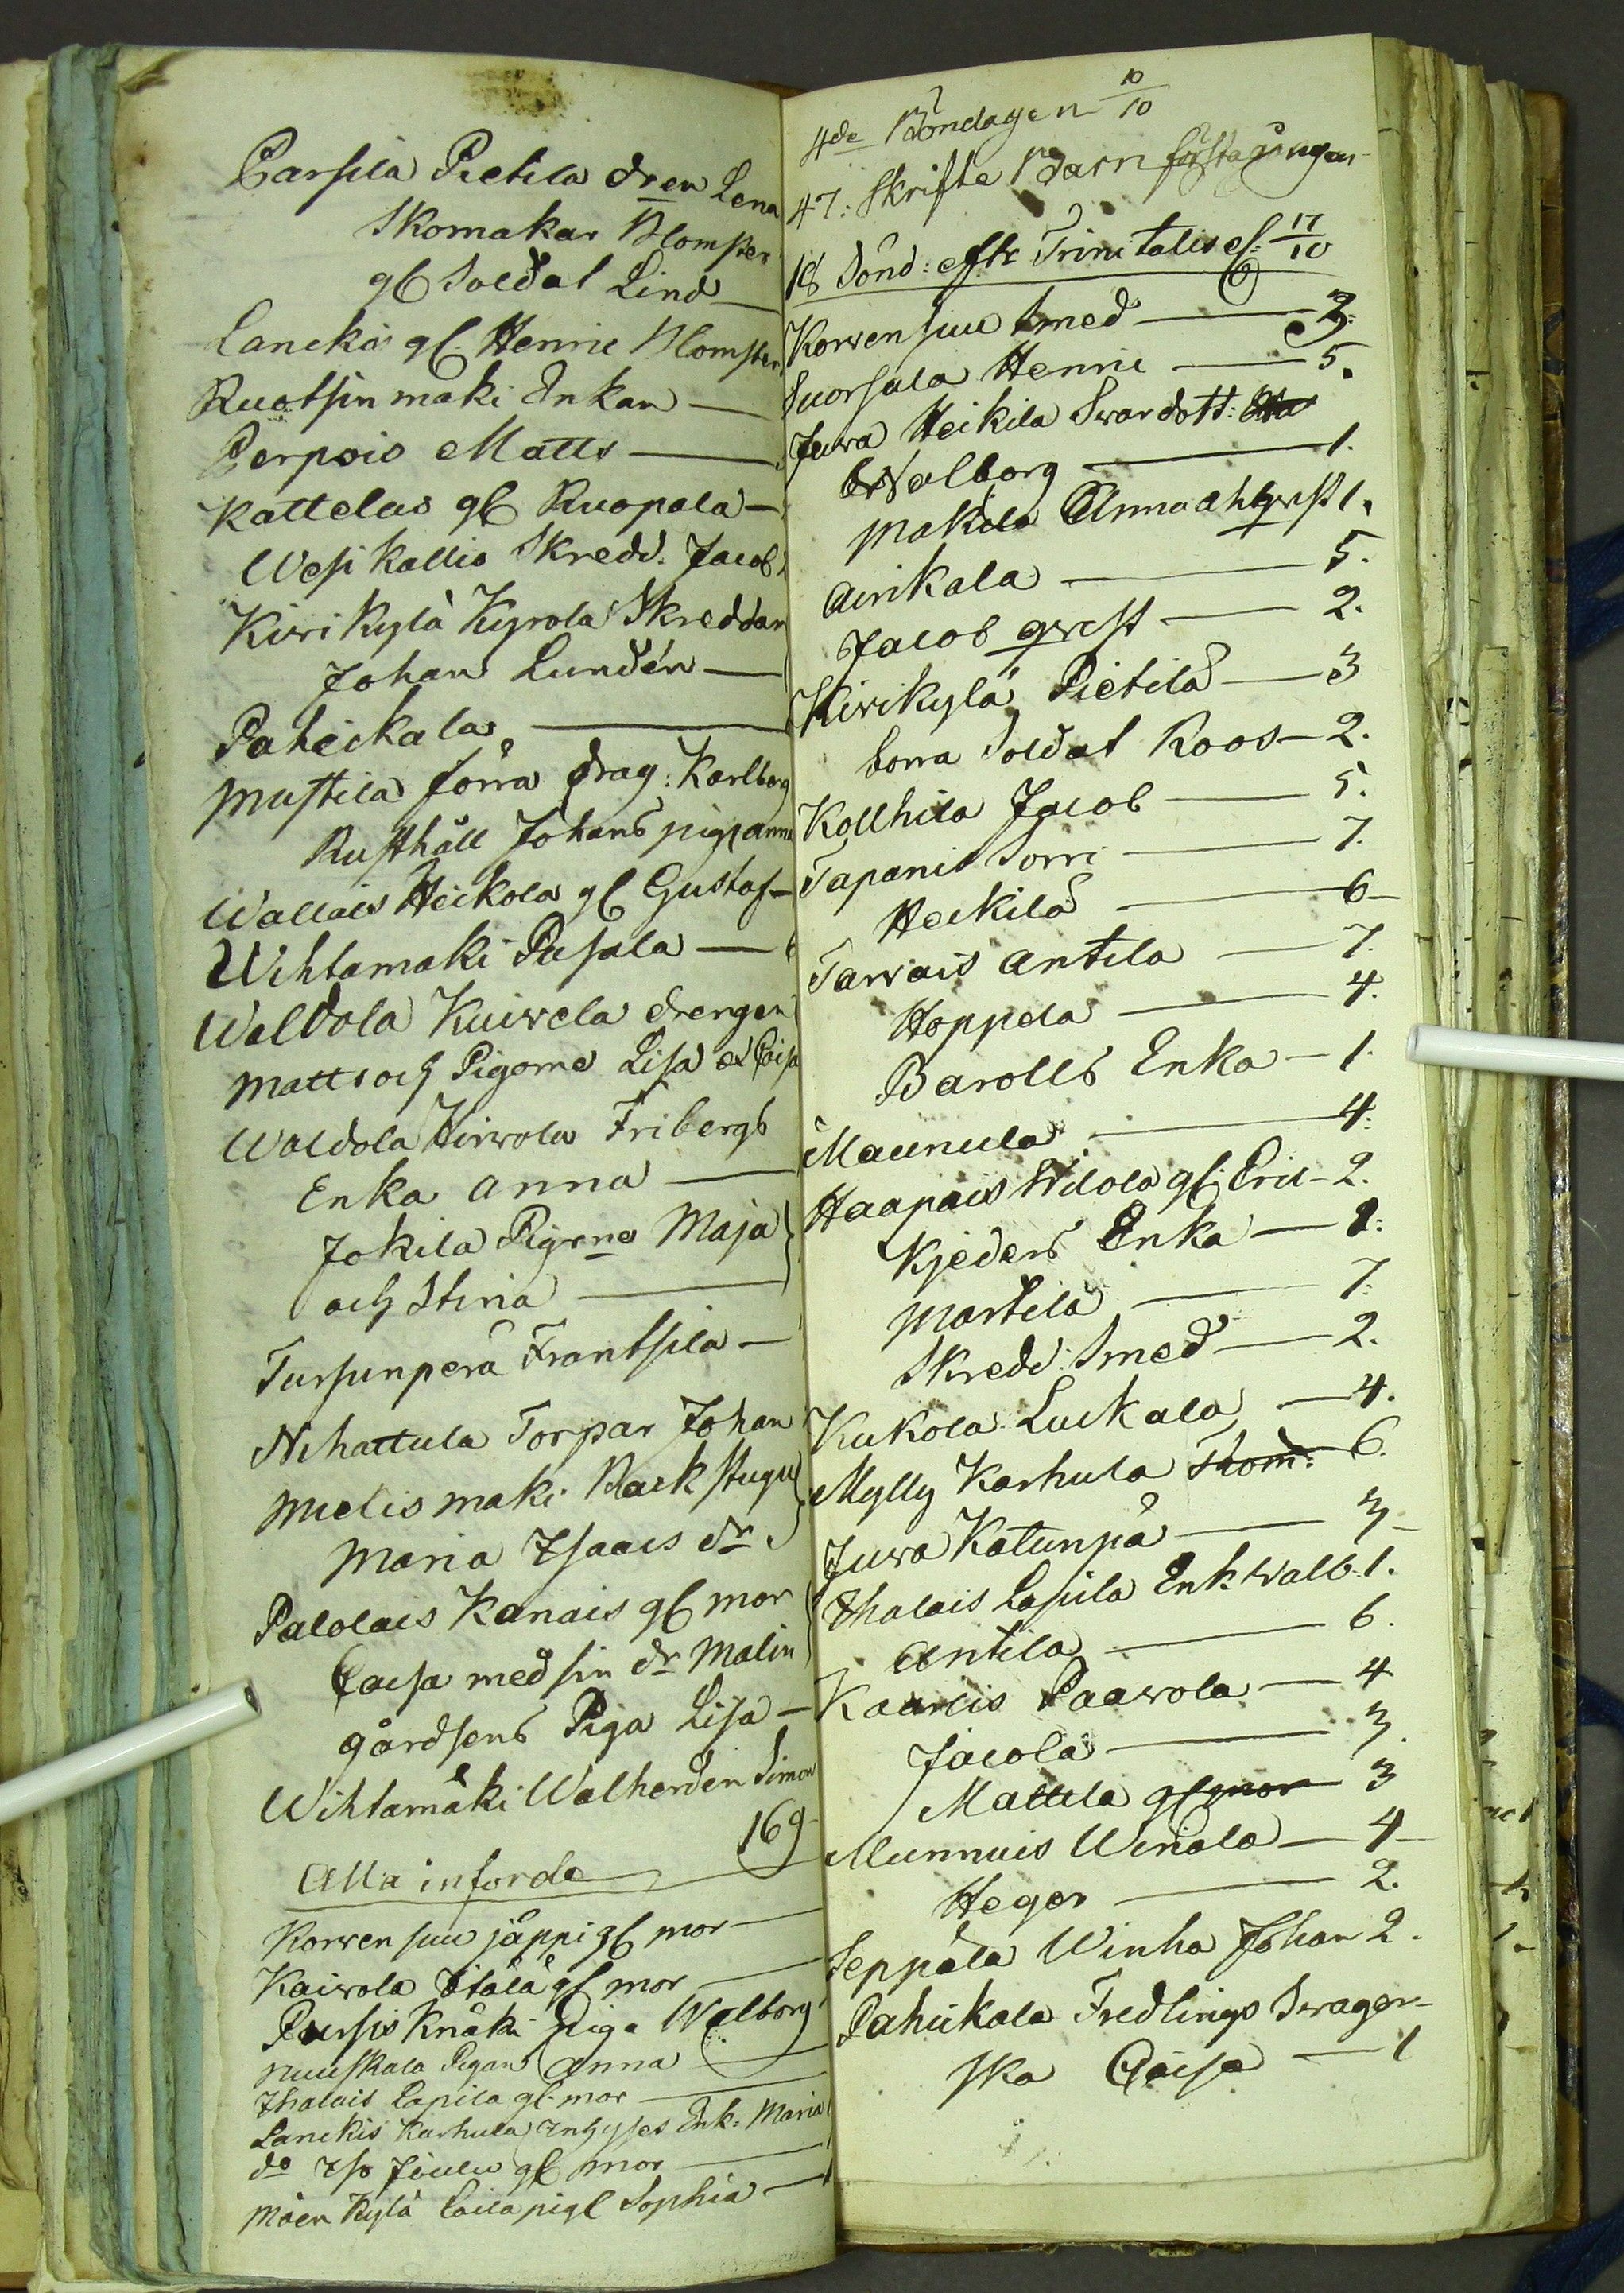 Carsila Pietila dren Lena
Skomakar Blomster
gl Soldat Lind
Lancki gl Henric Blomster
Ruotsinmaki Enkan
Perpois Matts
Kattelus gl Ruopala
Wesikallio Skredd. Jacob
Kirikylä Kyrola Skreddar
Johan Lundén
Paheikala
Mustila förra drag: Karlberg
Rusthåll Johans piga Anna
Wallais Heikola gl Gustaf
Wihtamaki Pasala
Waldola Kuivela drengen
Matts och Pigorne Lisa & Caisa
Waldola Hirvola Fribergs
Enka Anna
Jokila Pigorna Maja
och Stina
Tursunperä Frantsila
Nihattula Torpar Johan
Mielismaki Backstugu
Maria Isaacs dr
Palolais Kanais gl mor
Caisa med sin dr Malin
gårdsens Piga Lisa
Wihtamäki Walherden Simon
169
Alla inforde
Korvensuu jäppi gl mor
Kaivola Ітälä gl mor
Pursis Knäki Piga Walborg
nuuskala Pigan Anna
Ihalais Lapila gl mor
Lanckis Karhula Inhyses Enk: Maria
do Iso Jöulu gl mor
Mäenkylä Caila pigl Sophia
4de Böndagen 10/10
47: Skrifte Barn första gången
18 Sönd: efte Trinitatis el: 17/10
Korvensuu Smed 3:
Suorsala Henric 5.
Juva Heikila Svardott:
Walborg 1.
Makila Anna ahlqvist 1.
Airikala 5.
Jacob qvist 2.
Kirikylä Pietilä 3
Sorra Soldat Roos 2.
Kollhila Jacob 5.
Tapanis Sorri 7.
Heikilä 6
Tarvais Antila 7.
Hoppela 4.
Barolls Enka 1.
Maunula 4.
Haapais Wilola gl: Eric 2.
Kjeders Enka 1:
Martila 7.
Skredd: Smed 2.
Kukola Luckala 4.
Mylly Karhula Thom: 6.
Juva Katunpä 3
Ihalais Lapila Enk Walb 1.
Antila 6.
Kaaris Paavola 4
Jacola 3.
Mattila gl mor 3
Munnuis Winola 4
Heger 2.
Seppäla Winha Johan 2.
Pahikala Fredlings Svager-
ska Caisa 1